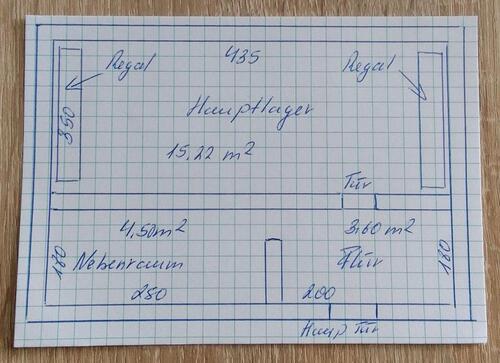 435
Regal
Regal
350
Hauptlager
15,22 m²
Tür
4,50m²
3,60 m²
180
Nebenraum
Flür
180
250
200
Haup Tür